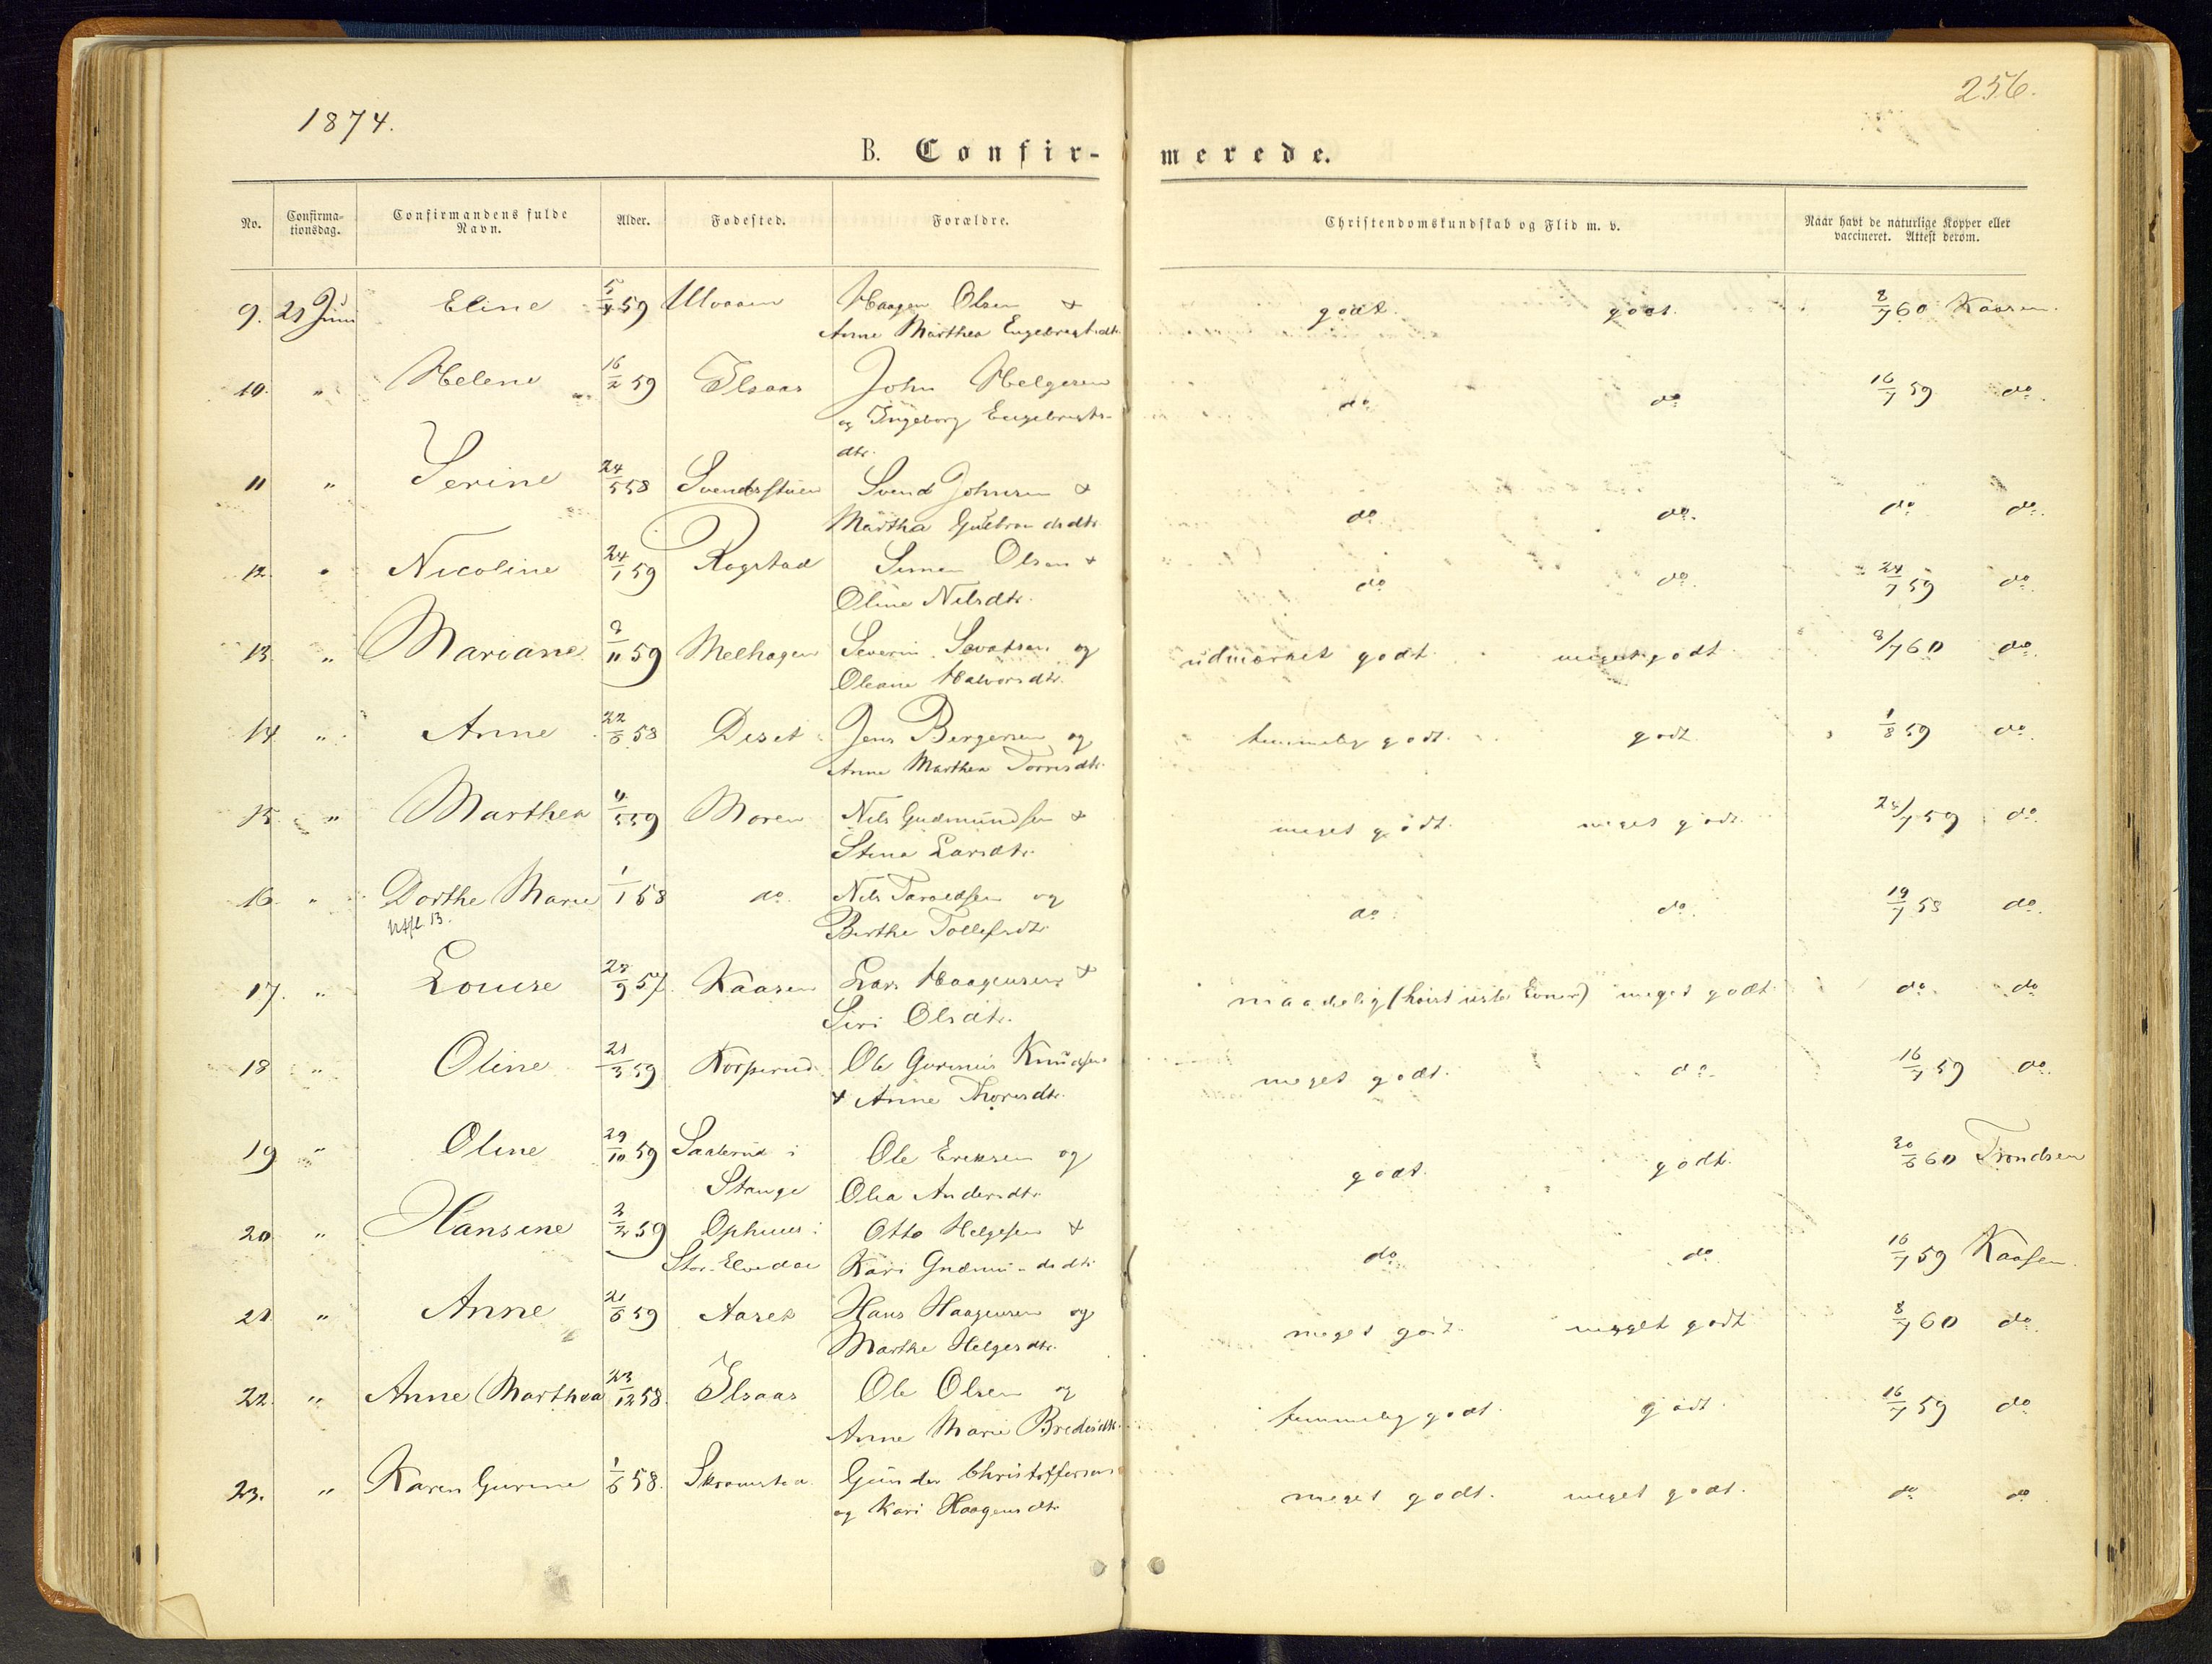 1874.
256.
B. Confir-
merede.
No. Confirma-
tionsdag. Confirmandens fulde
Navn. Alder. Fødested. Forældre. Christendomskundskab og Flid m. v. Naar havt de naturlige Kopper eller
vaccineret. Attest derom.
9. 21 Juni Eline 59 Ulvaaen Haagen Olsen & godt. godt. 8/7 60 Kaasen.
Anne Marthea Engebregtsdtr.
10. " Helene 16/2 59 Elsaas John Helgesen do do. 16/7 59 do.
og Ingeborg Engebregts-
dtr.
11 " Serine 24/5 58 Svendsstuen Svend Johnsen & do do. do do.
Martha Gulbrandsdtr.
12. " Nicoline 24/1 59 Rogstad Simen Olsen & do do. 24/7 59 do.
Oline Nilsdtr.
13. " Mariane 9/11 59 Melhagen Severin og udmærket godt. meget godt 8/7 60 do.
Oleane Halvorsdtr.
14 " Anne 22/6 58 Deset Jens Bergersen og temmelig godt. godt 1/8 59 do.
Anne Marthea Torresdtr.
15. " Marthea 4/5 59 Moren Nils Gudmundsen & meget godt. meget godt. 7 59 do.
Stina Larsdtr.
16. " Dorthe Marie 1/1 58 do. Nils Taraldsen og do do. 19/7 58 do.
Berthe Tollefsdtr
17. " Louise 28/9 57. Kaasen Lars Haagensen & maadelig (høist usle Evner) meget godt. do. do
Siri Olsdtr.
18 " Oline 21/3 59 Korperud Ole Gurinius Knudsen meget godt. do. 16/7 59 do.
& Anne Thoresdtr.
19 " Oline 29/10 59 Saalerud i Ole Eriksen og godt. godt. 30/6 60 Trondsen
Stange Olia Andersdtr.
20 " Hansine 2/2 59 Ophuus i Otto Helgesen & do. do 16/7 59 Kaasen.
Stor-Elvedal Kari Gudmundsdtr
21 " Anne 21/6 59 Aasek Hans Haagensen og meget godt. meget godt 8/7 60 do.
Marthe Helgesdtr.
22. " Anne Marthea 23/12 58. Elsaas Ole Olsen og temmelig godt. godt. 16/7 59 do
Anne Marie Bredesdtr.
23. " Karen Gurine 1/6 58. Skramstad Gunder Christoffersen meget godt. meget godt. do do.
og Kari Haagensdtr